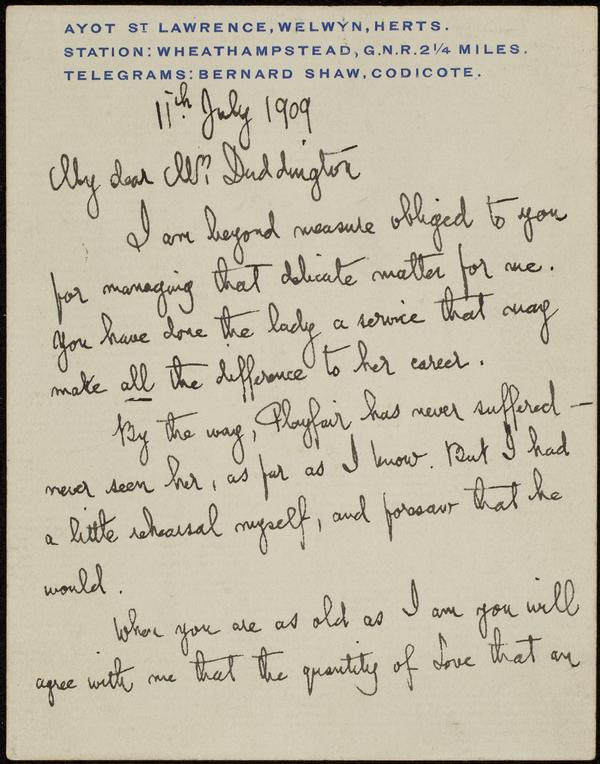 AYOT ST LAWRENCE, WELWYN, HERTS.
STATION: WHEATHAMPSTEAD, G.N.R. 2¼ MILES.
TELEGRAMS: BERNARD SHAW, CODICOTE.
11th July 1909
My dear Mrs Duddington
I am beyond measure obliged to you
for managing that delicate matter for me.
You have done the lady a service that may
make all the difference to her career.
By the way, Playfair has never suffered —
never seen her, as far as I know. But I had
a little rehearsal myself, and foresaw that he
would.
When you are as old as I am you will
agree with me that the quantity of Love that an